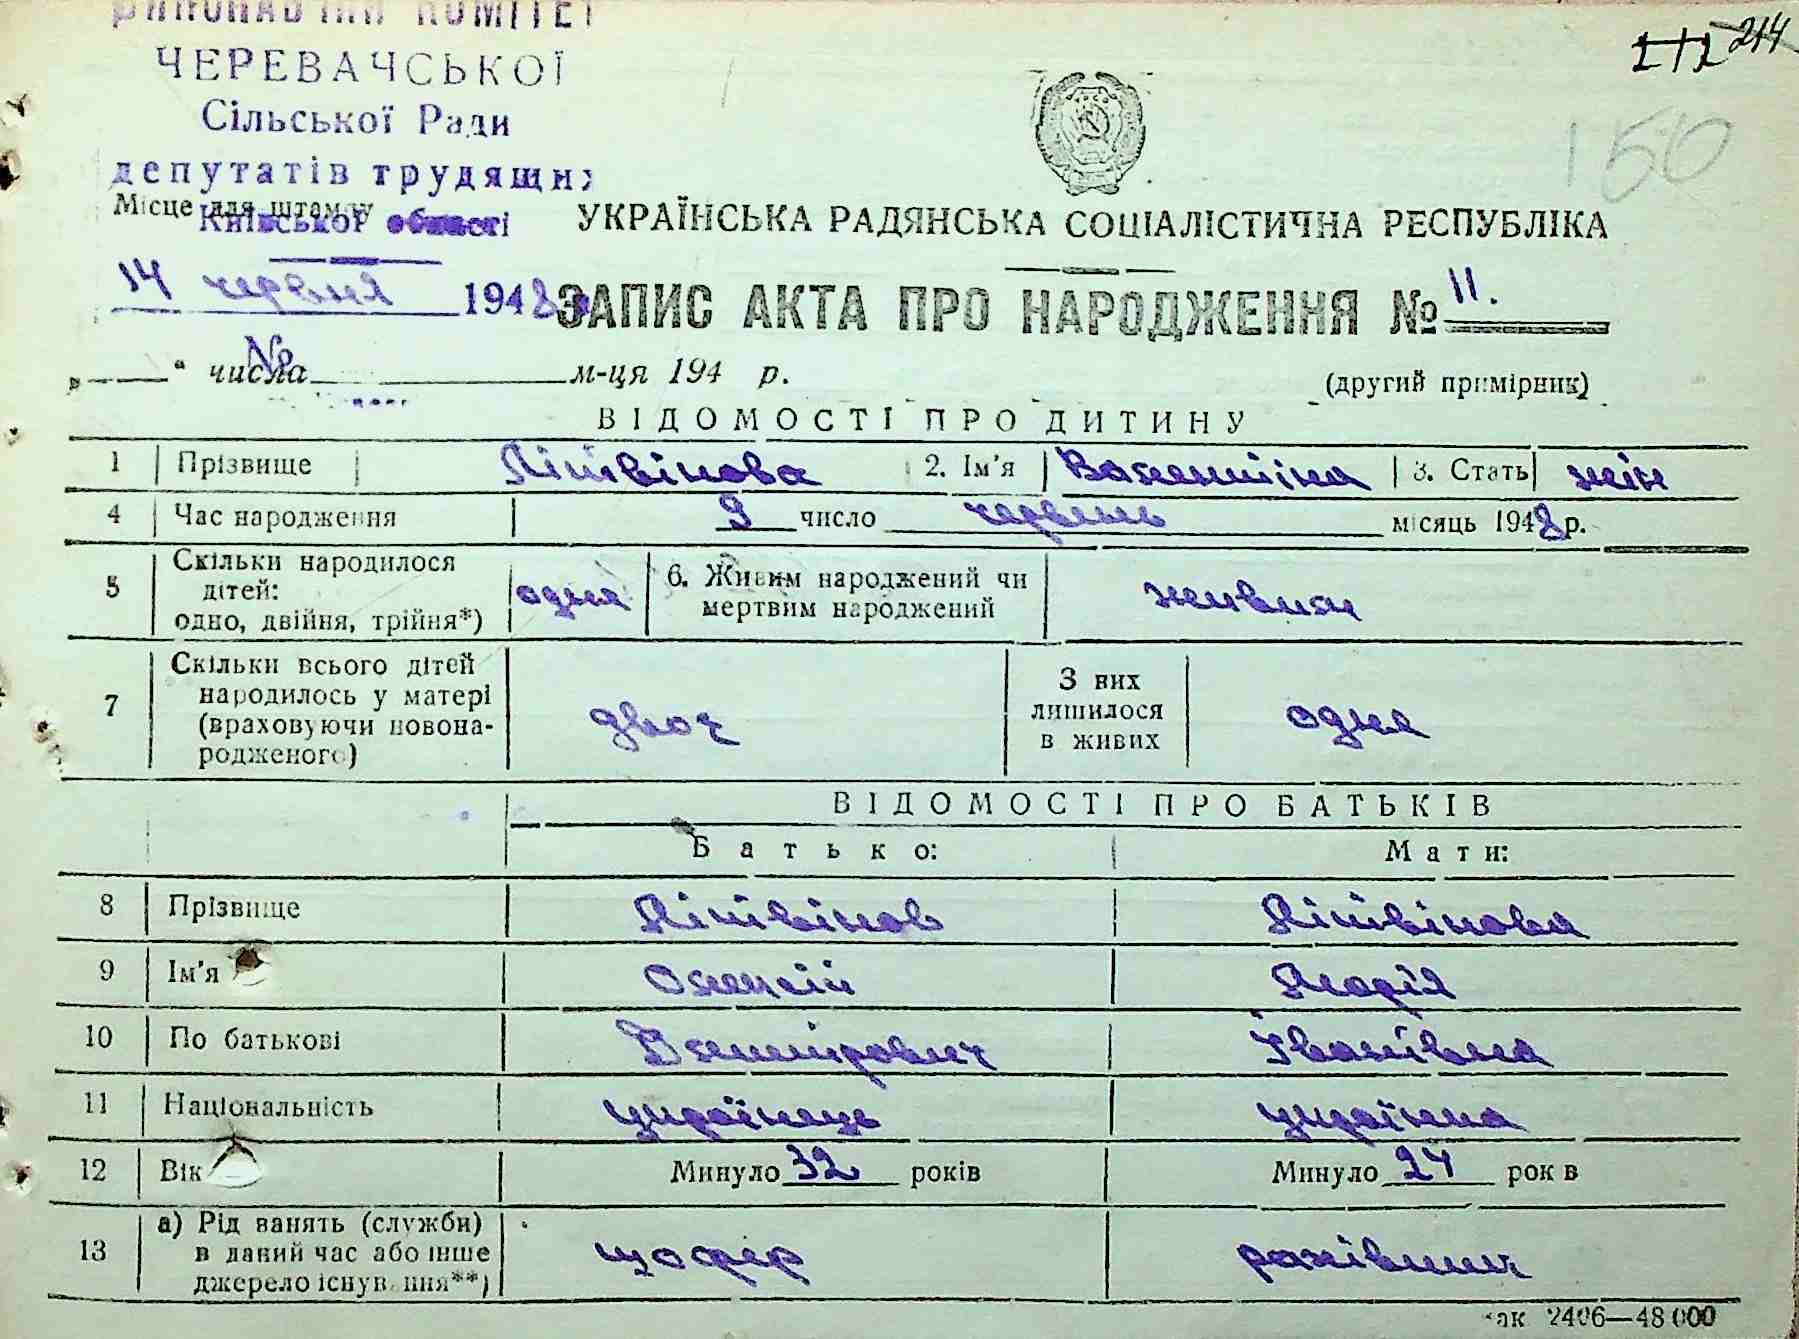 ВИКОНАВЧИЙ КОМІТЕТ
ЧЕРЕВАЧСЬКОЇ
Сільської Ради
депутатів трудящих
Місце для штампу
Київської області
214
150
УКРАЇНСЬКА РАДЯНСЬКА СОЦІАЛІСТИЧНА РЕСПУБЛІКА
14 червня 1948
ЗАПИС АКТА ПРО НАРОДЖЕННЯ № 11.
№
„ “ числа м-ця 194 р.
(другий примірник)
ВІДОМОСТІ ПРО ДИТИНУ
1 Прізвище Літвінова 2. Ім'я Валентіна 3. Стать жін
4 Час народження 9 число червень місяць 1948 р.
5 Скільки народилося дітей: одно, двійня, трійня*) одна 6. Живим народжений чи мертвим народжений живим
7 Скільки всього дітей народилось у матері (враховуючи новонародженого) двоє З них лишилося в живих одна
ВІДОМОСТІ ПРО БАТЬКІВ
Батько: Мати:
8 Прізвище Літвінов Літвінова
9 Ім'я Олексій Марія
10 По батькові Іванівна
11 Національність українець українка
12 Вік Минуло 32 років Минуло 24 рок в
13 а) Рід занять (служби) в даний час або інше джерело існування**) шофер рахівник
зак 2406—48 000